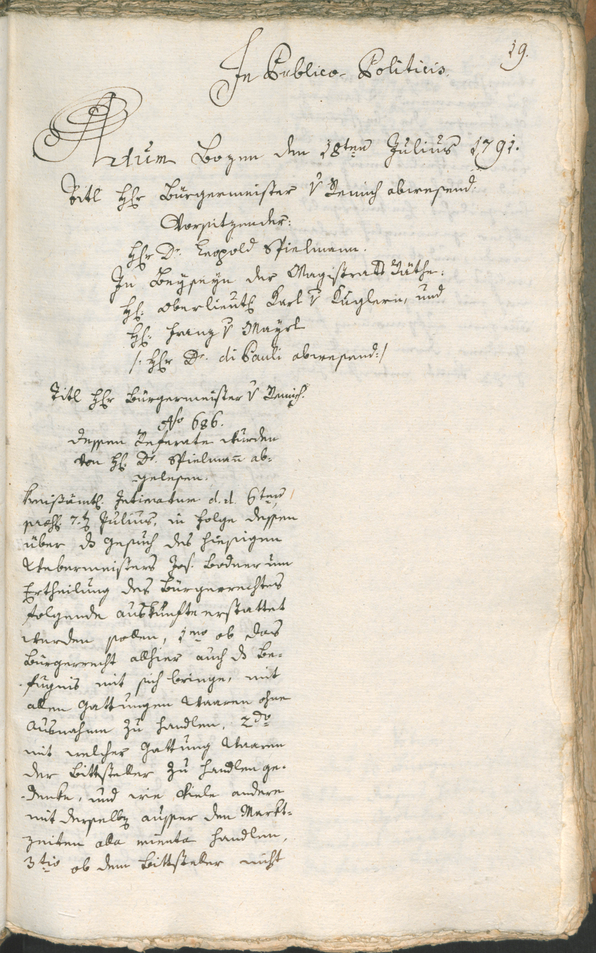 19.
In Publico-Politicis.
Actum Bozen den 18ten Julius 1791.
Titl Hr Bürgermeister v Remich abwesend:
Vorsitzender:
Hr Dr. Leopold Spielmann.
In Beyseyn der Magistrats Räthe:
H: Oberlieut. Karl v Kuglern, und
H: Franz v Mayrl
/: Hr Dr. di Pauli abwesend:/
Titl Hr Bürgermeister v Remich.
No 686.
dessen Referate wurden
von H: Dr. Spielmañ ab-
gelesen.
Kreisämtl. Intimatum d. d. 6ten /
praes 7. Julius, in Folge dessen
über das Gesuch des hiesigen
Webermeisters Jos. Bodner um
Ertheilung des Bürgerrechtes
folgende auskünfte erstattet
werden sollen, 1mo ob das
Bürgerrecht allhier auch die Be-
fugnis mit sich bringe, mit
allen Gattungen Waaren ohne
Ausnahme zu handlen, 2do
mit welcher Gattung Waaren
der Bittsteller zu handlen ge-
denke, und wie viele andere
mit derselben ausser den Markt-
zeiten alla minuta handlen,
3tio ob dem Bittsteller nicht